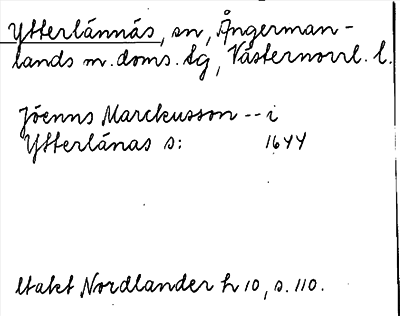 Ytterlännäs, sn, Ångerman-
lands m. doms. tg, Västernorrl. l.
Jöenns Marckusson -- i
Ytterlänas s: 1644
ltakt Nordlander h 10, s. 110.